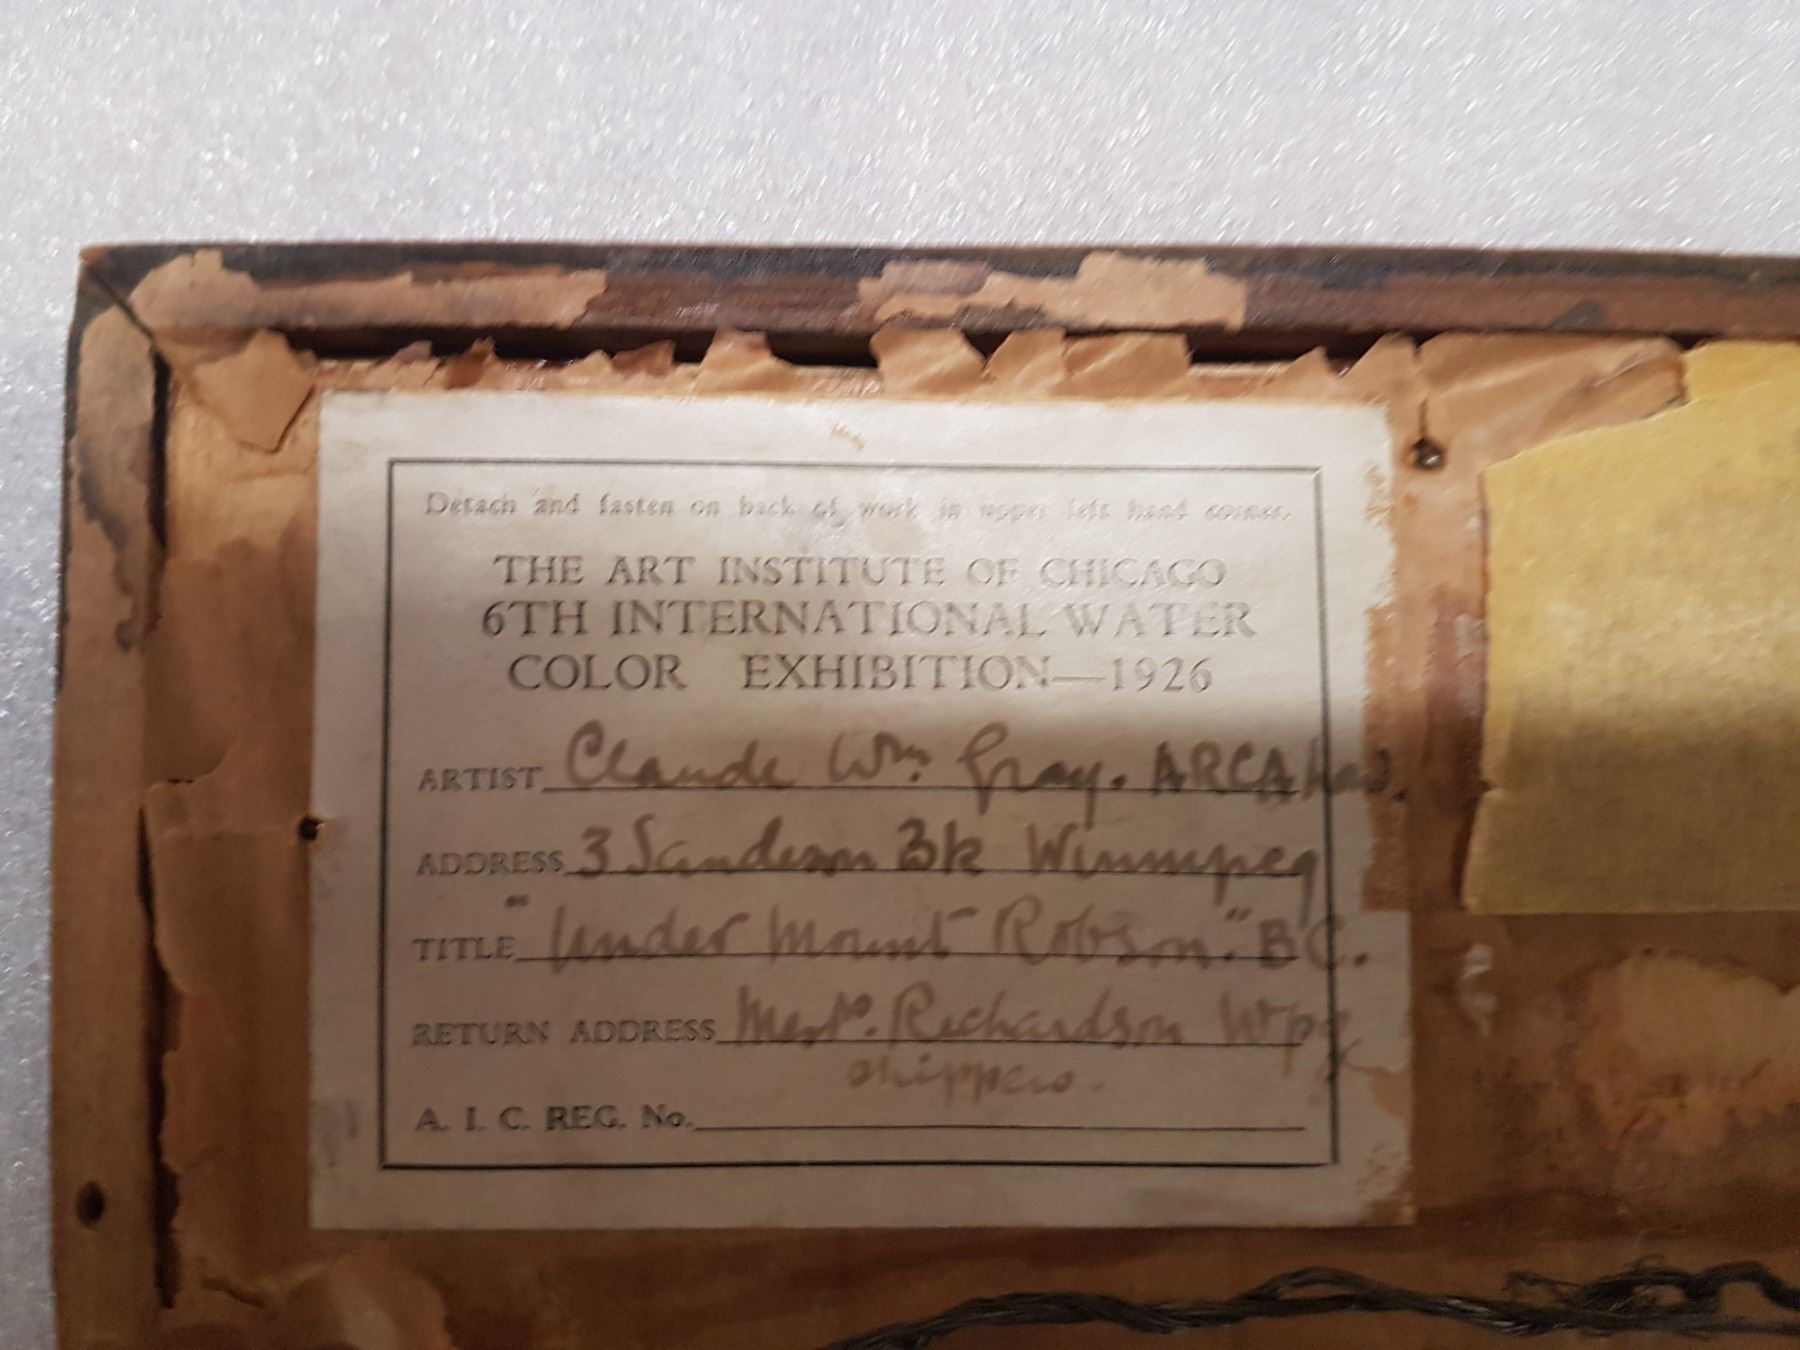 Detach and fasten on back of work in upper left hand corner.
THE ART INSTITUTE OF CHICAGO
6TH INTERNATIONAL WATER
COLOR EXHIBITION—1926
ARTIST Claude Wm. Gray. ARCA
ADDRESS 3 Sanderson Blk Winnipeg
TITLE "Under Mount Robson." BC.
RETURN ADDRESS Richardson Wpg
shippers.
A. I. C. REG. No.